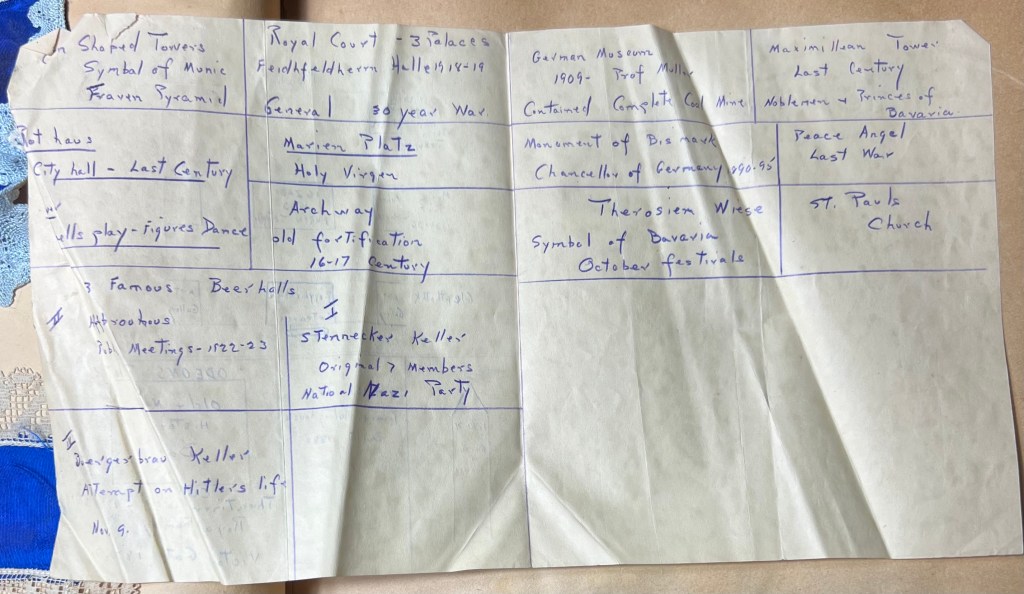 n Shaped Towers
Symbol of Munic
Fraven Pyramid
Royal Court - 3 Palaces
Feidhfeldherrn Halle 1918-19
General 30 year War
German Museum
1909- Prof Muller
Contained Complete Coal Mine
Maximillian Tower
Last Century
Noblemen & Princes of
Bavaria
Rot haus
City hall - Last Century
Marien Platz
Holy Virgen
Monument of Bismark
Chancellor of Germany 890-95
Peace Angel
Last War
ells play - Figures Dance
Archway
old fortification
16-17 Century
Therosien Wiese
Symbol of Bavaria
October festivals
ST. Pauls
Church
3 Famous Beerhalls
II
Pub Meetings - 1922-23
I
STennecker Keller
Original 7 Members
National Nazi Party
II
Buergerbrau Keller
ATTempt on Hitlers life
Nov. 9.